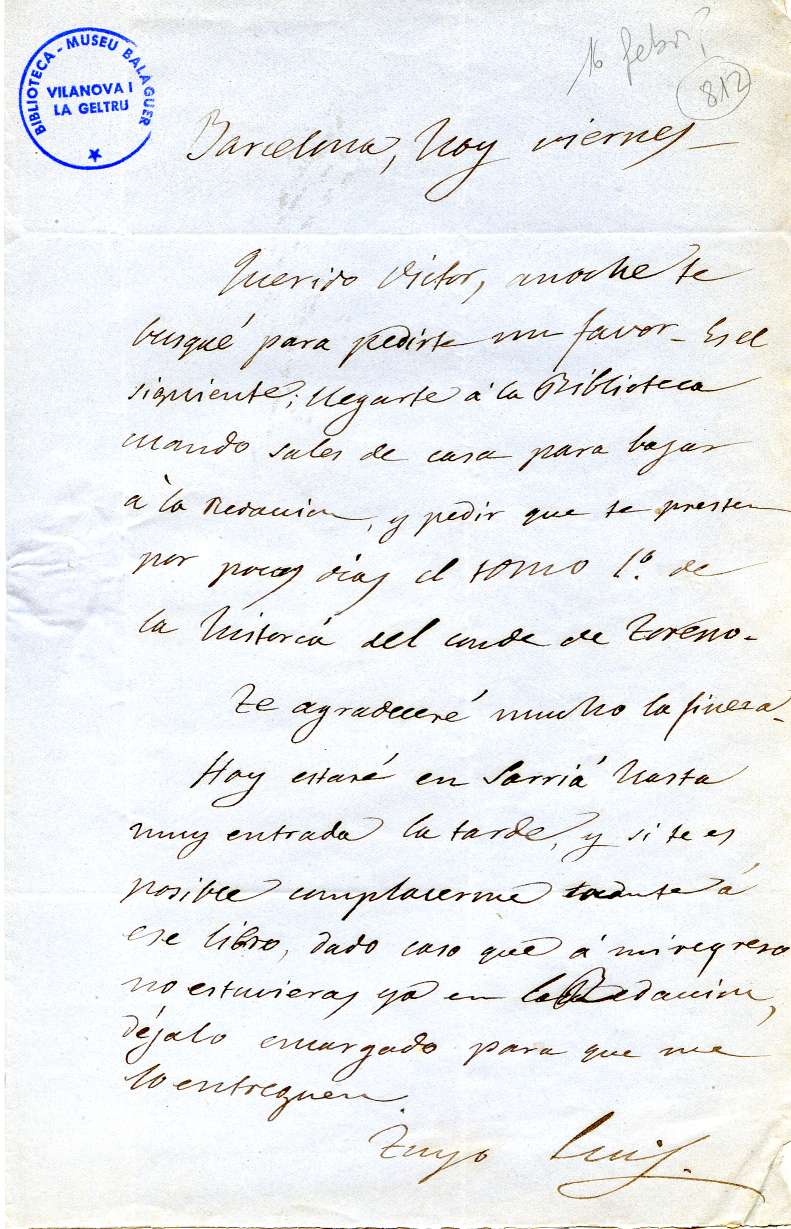 BIBLIOTECA - MUSEU BALAGUER
VILANOVA I
LA GELTRU
16
812
Barcelona, hoy viernes_
Querido Victor, anoche te
busqué para pedirte un favor_ Es el
siguiente; llegarte á la Biblioteca
cuando sales de casa para bajar
á la Redaccion, y pedir que te presten
por pocos dias el tomo 1º. de
la historia del conde de Toreno_
Te agradeceré mucho la fineza_
Hoy estaré en Sarriá hasta
muy entrada la tarde, y si te es
posible complacerme tocante á
ese libro, dado caso que á mi regreso
no estuvieras ya en la Redaccion,
déjalo encargado para que me
lo entreguen
Tuyo Luis.